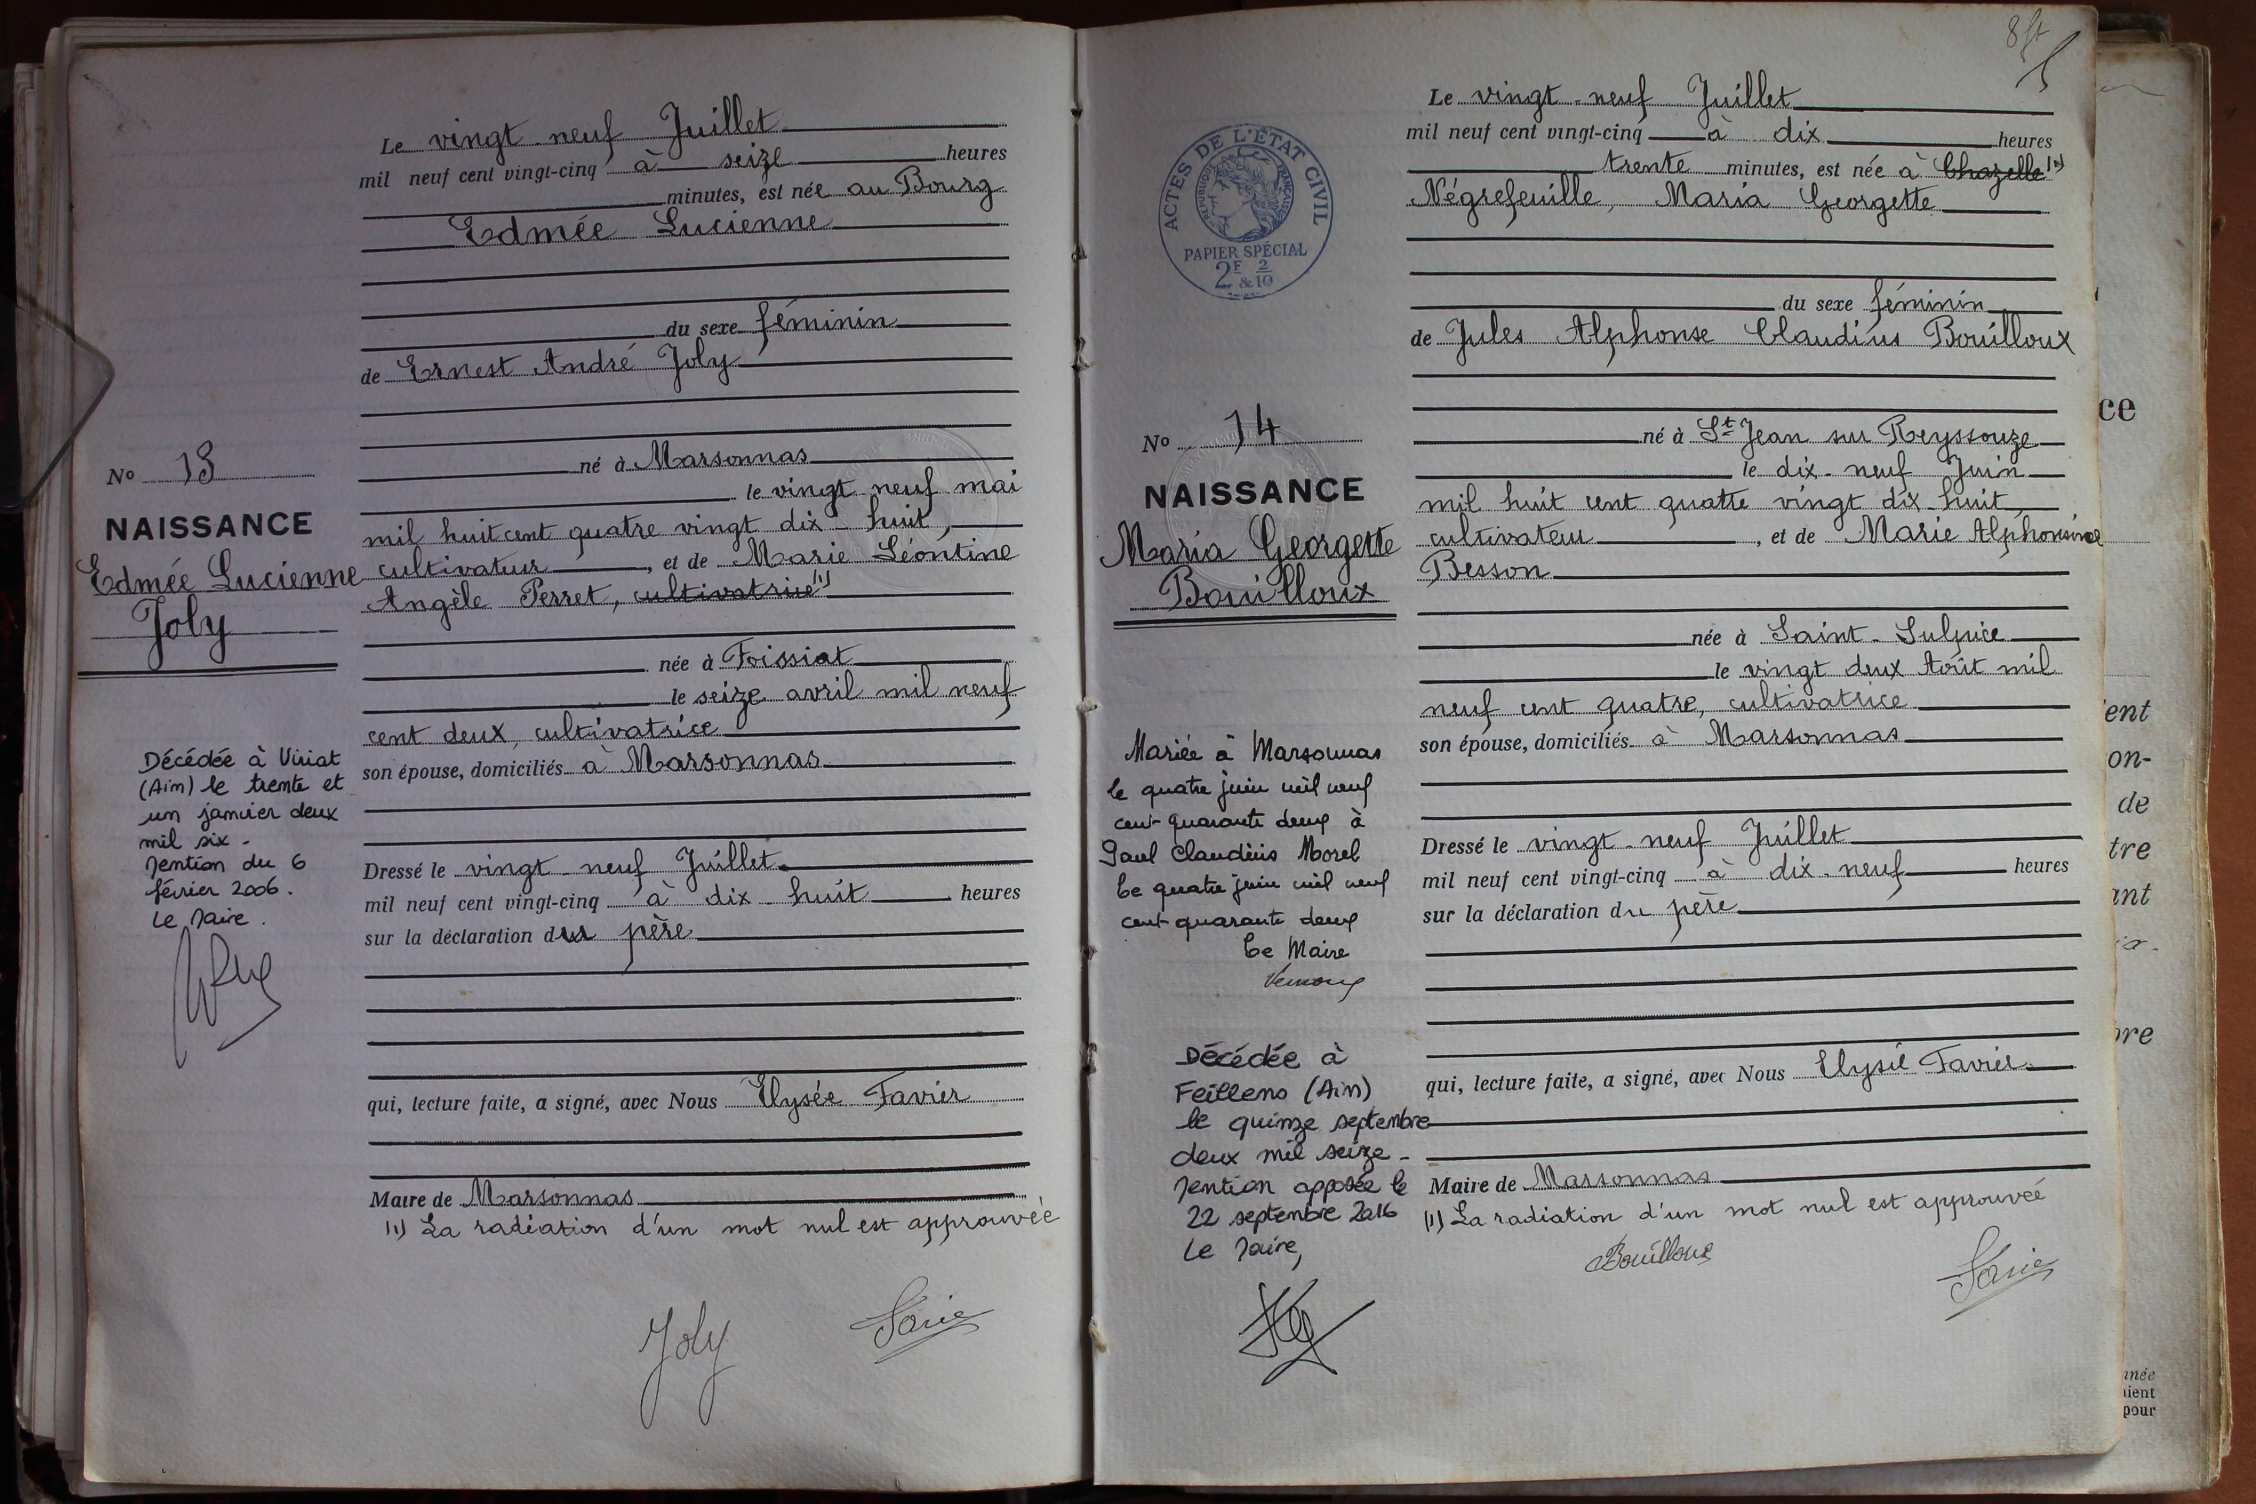 Le vingt-neuf Juillet
mil neuf cent vingt-cinq à seize heures
minutes, est née au Bourg
Edmée Lucienne
du sexe féminin
de Ernest André Joly
né à Marsonnas
le vingt neuf mai
mil huit cent quatre vingt dix-huit,
cultivateur, et de Marie Léontine
Angèle Perret, cultivatrice (1)
née à Foissiat
le seize avril mil neuf
cent deux, cultivatrice
son épouse, domiciliés à Marsonnas
Dressé le vingt-neuf Juillet
mil neuf cent vingt-cinq à dix-huit heures
sur la déclaration du père
qui, lecture faite, a signé, avec Nous Elysée Favier
Maire de Marsonnas
(1) La radiation d'un mot nul est approuvée
Joly
No 13
NAISSANCE
Edmée Lucienne
Joly
Décédée à Viriat
(Ain) le trente et
un janvier deux
mil six -
Mention du 6
février 2006.
Le Maire.
8
ACTES DE L'ÉTAT CIVIL
RÉPUBLIQUE FRANÇAISE
PAPIER SPÉCIAL
2F & 2/10
No 14
NAISSANCE
Maria Georgette
Bouilloux
Mariée à Marsonnas
le quatre juin mil neuf
cent quarante deux à
Paul Claudius Morel
Le quatre juin mil neuf
cent quarante deux
Le Maire
Décédée à
Feillens (Ain)
le quinze septembre
deux mil seize -
Mention apposée le
22 septembre 2016
Le Maire,
Le vingt-neuf Juillet
mil neuf cent vingt-cinq à dix heures
trente minutes, est née à Chazelle (1)
Négrefeuille, Maria Georgette
du sexe féminin
de Jules Alphonse Claudius Bouilloux
né à St Jean sur Reyssouze
le dix-neuf Juin
mil huit cent quatre vingt dix-huit,
cultivateur, et de Marie Alphonsine
Besson
née à Saint-Sulpice
le vingt deux Août mil
neuf cent quatre, cultivatrice
son épouse, domiciliés à Marsonnas
Dressé le vingt-neuf Juillet
mil neuf cent vingt-cinq à dix-neuf heures
sur la déclaration du père
qui, lecture faite, a signé, avec Nous Elysée Favier
Maire de Marsonnas
(1) La radiation d'un mot nul est approuvée
Bouilloux
ce
ent
on-
de
tre
ant
bre
nnée
aient
pour